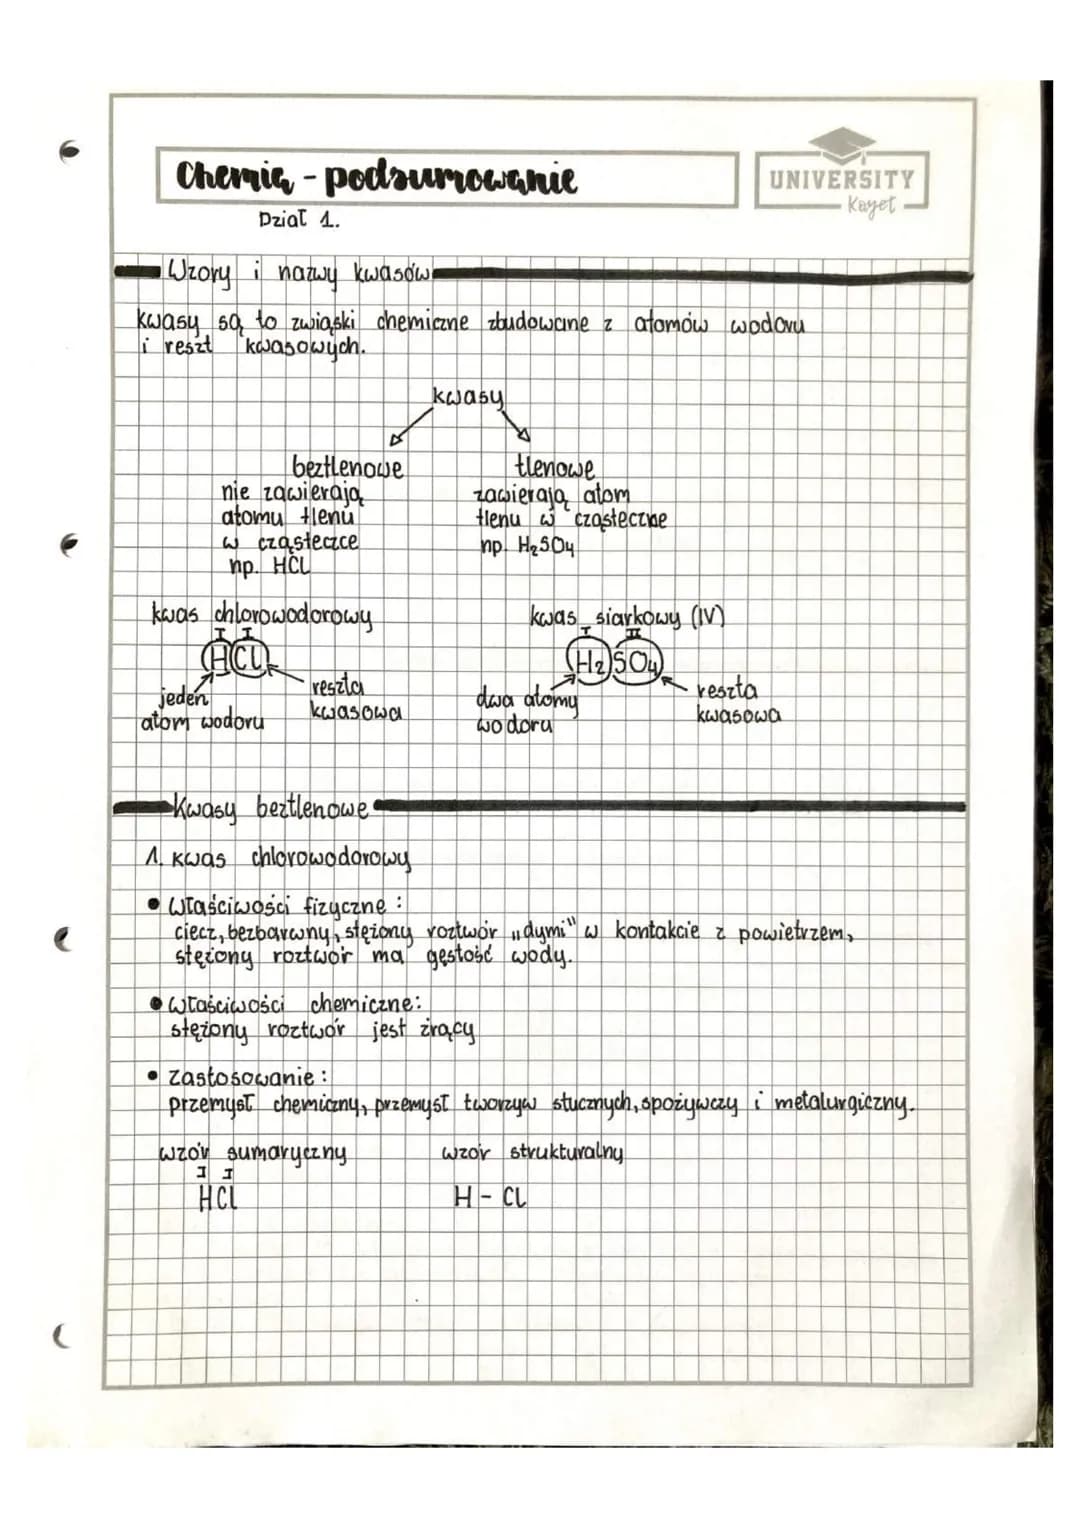 Chemia - podsumowanie
UNIVERSITY
Kajet
Dział 1.
Wzory i nazwy kwasów
kwasy są to związki chemiczne zbudowane z atomów wodoru
i reszt kwasowych.
kwasy
beztlenowe
nie zawierają
atomu tlenu
w cząsteczce
np. HCl
tlenowe
zawierają atom
tlenu w cząsteczne
np. H₂SO₄
kwas chlorowodorowy
I I
HCl
jeden
atom wodoru
reszta
kwasowa
kwas siarkowy (IV)
I II
H₂SO₄
dwa atomy
wodoru
reszta
kwasowa
Kwasy beztlenowe
1. kwas chlorowodorowy
• właściwości fizyczne :
ciecz, bezbarwny, stężony roztwór „dymi" w kontakcie z powietrzem,
stężony roztwór ma gęstość wody.
• właściwości chemiczne:
stężony roztwór jest żrący
• zastosowanie :
przemysł chemiczny, przemysł tworzyw stucznych, spożywczy i metalurgiczny.
wzór sumaryczny
I I
HCl
wzór strukturalny
H - Cl